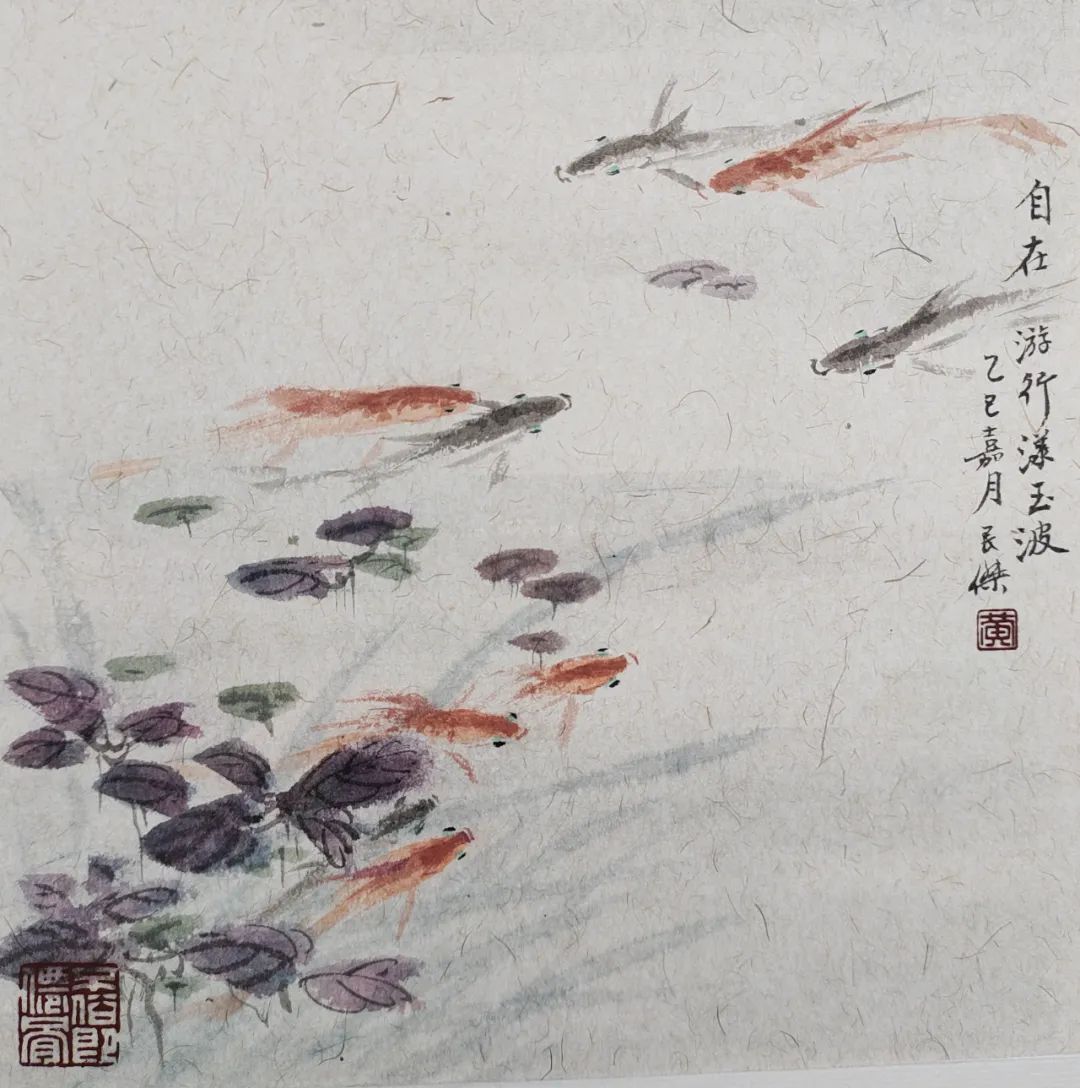 自在游行漾玉波
乙巳嘉月 民傑
黄